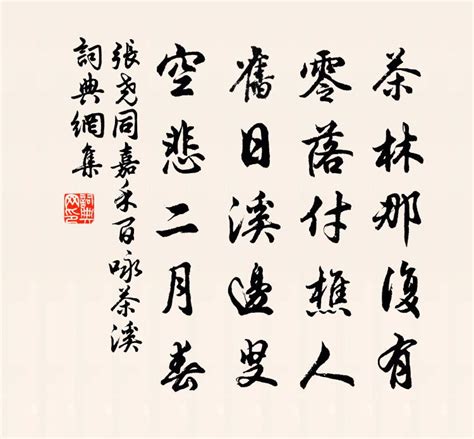 茶林那復有
零落付樵人
舊日溪邊叟
空悲二月春
張堯同嘉禾百咏茶溪
詞典網集
詞典
网印